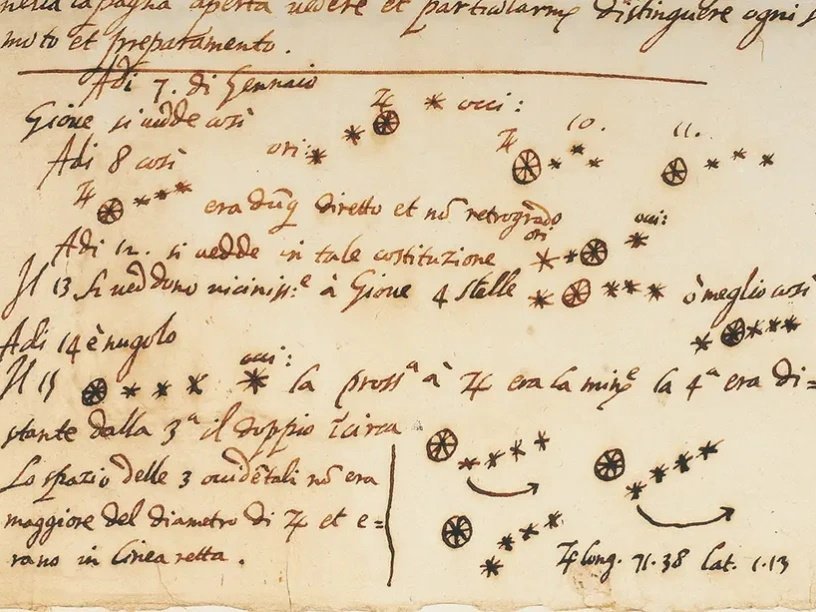 nella capagna aperta vedere et particularmẽ distinguere ogni
moto et preparamento.
Adi 7. di Gennaio
Giove si vedde così ♃ occi:
Adi 8 così ori: 10. 11.
♃ era dũq diretto et nõ retrogrado
Adi 12. si vedde in tale costituzione ori occi:
Il 13 si veddono vicinissᵉ à Giove 4 stelle ò meglio così
Adi 14 è nugolo
Il 15 occi: la prossᵃ à ♃ era la minᵉ la 4ᵃ era di=
stante dalla 3ᵃ il doppio ĩcirca
Lo spazio delle 3 occidẽtali nõ era
maggiore del diametro di ♃ et e=
rano in linea retta.
♃ long. 71.38 lat. 1.13